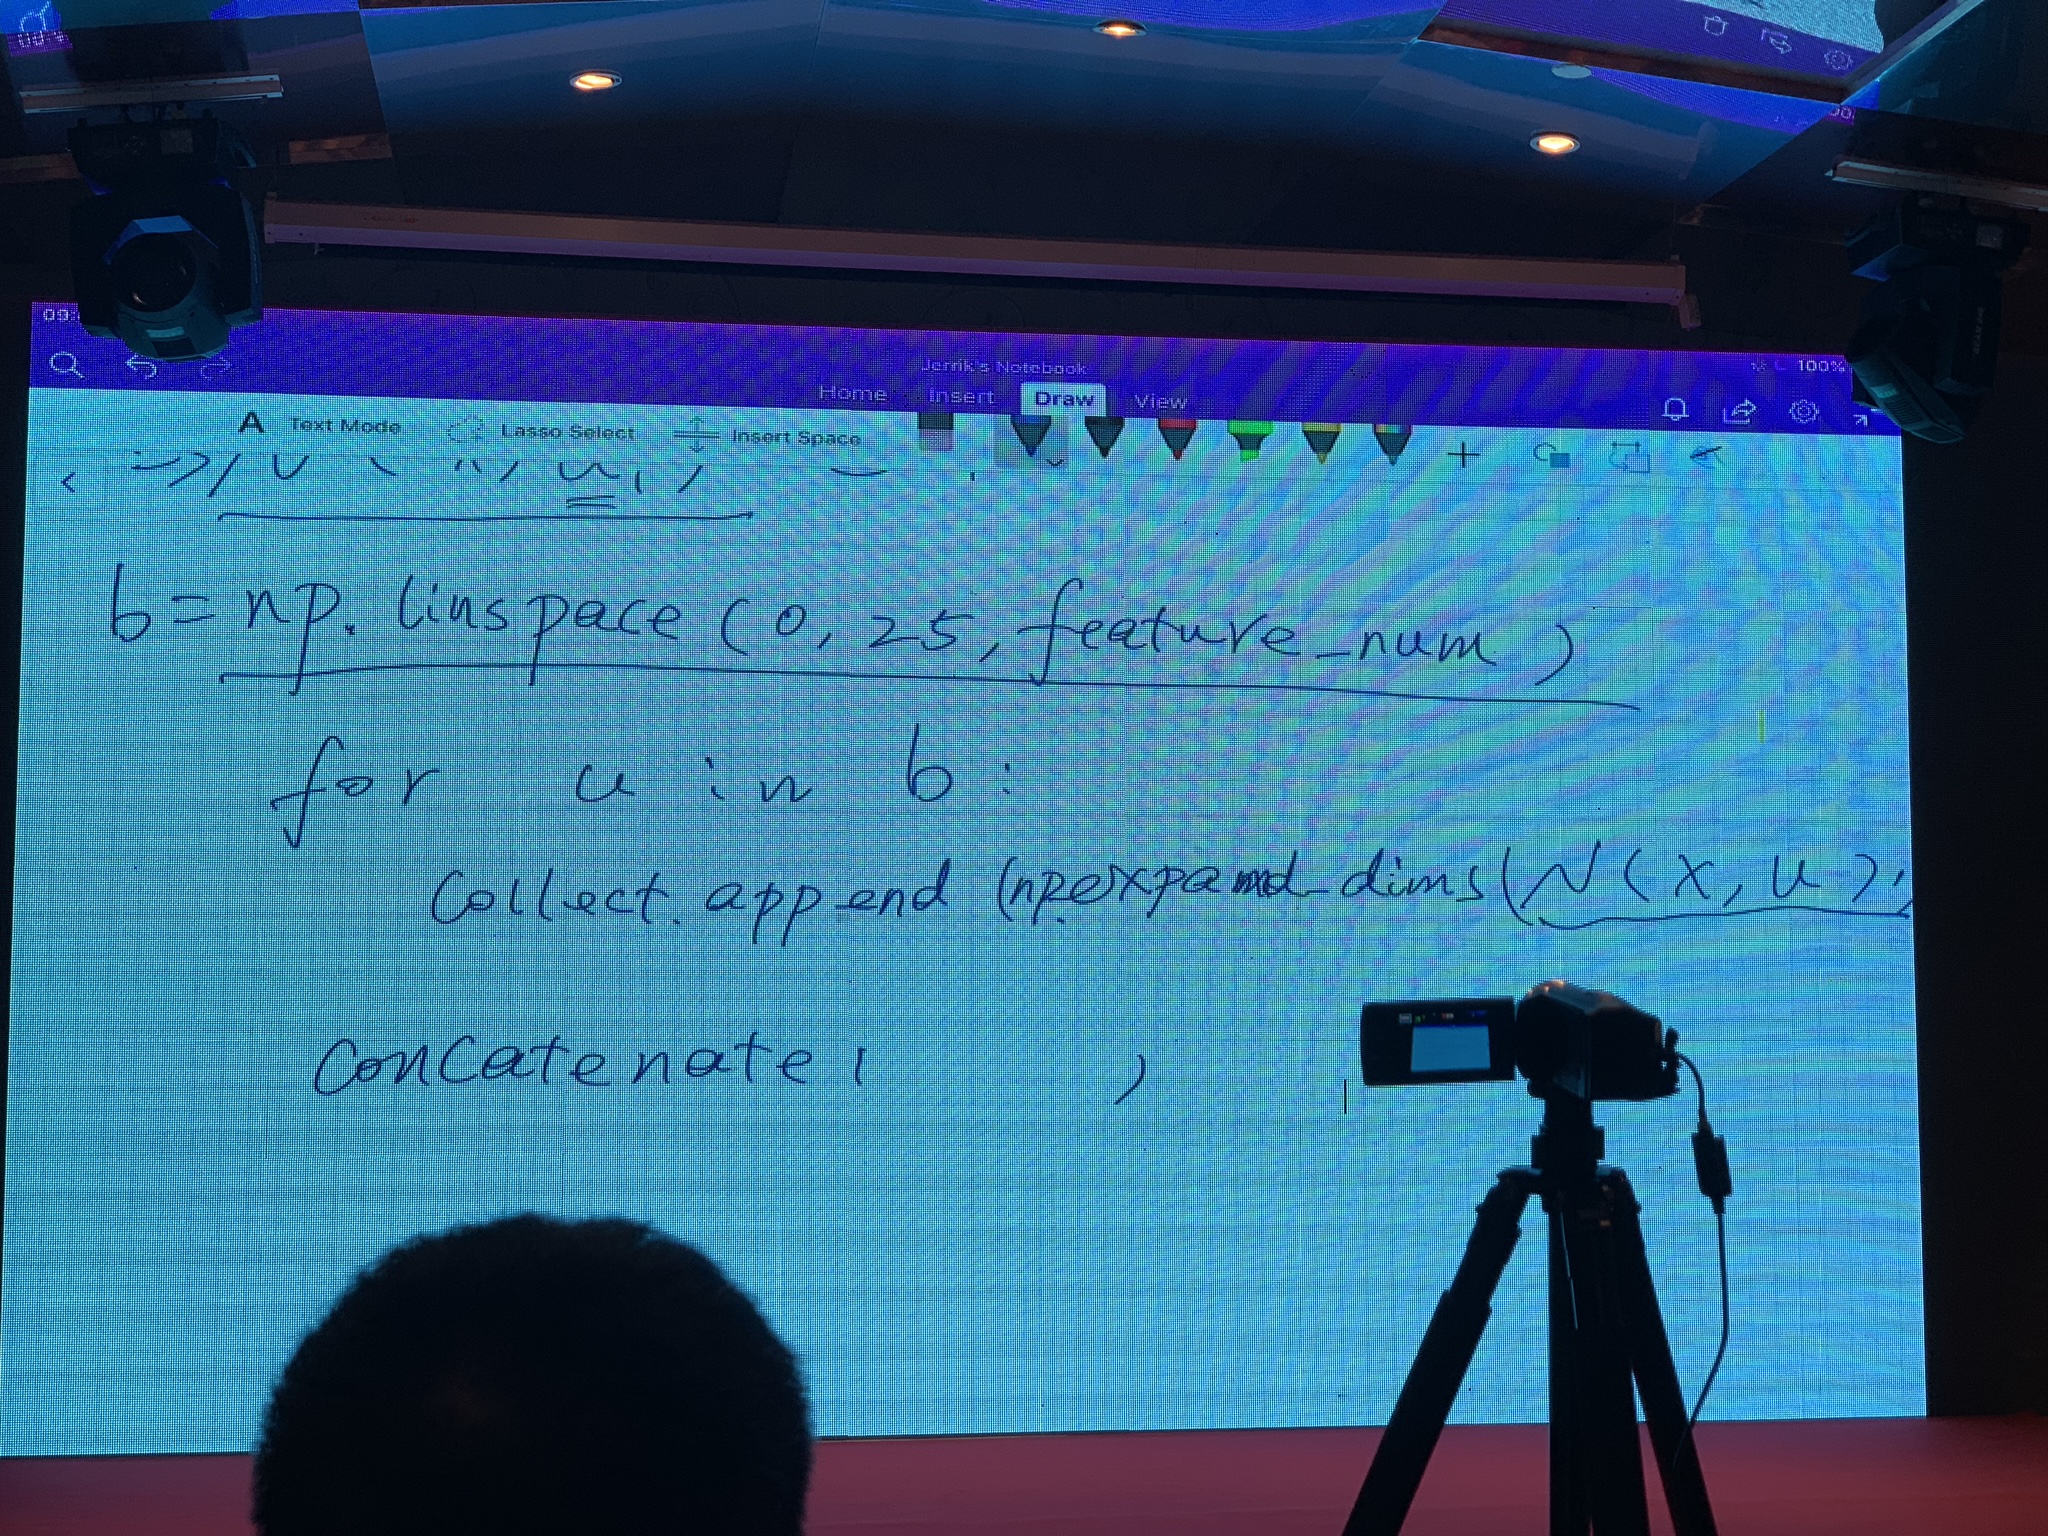 09:
Jerrik's Notebook
100%
Home Insert Draw View
A Text Mode Lasso Select Insert Space
b = np.linspace(0, 25, feature_num)
for u in b:
Collect.append(np.expand_dims(N(x, u),
Concatenate( )